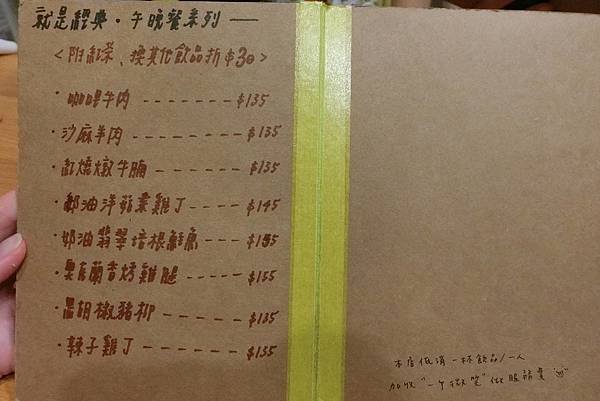 就是經典‧午晚餐系列 ——
<附紅茶、換其他飲品折$30>
‧咖哩牛肉 ------- $135
‧沙麻羊肉 ------- $135
‧紅燒燉牛腩 ------ $135
‧郵油洋菇薰雞丁 ---- $145
‧奶油翡翠培根鮭魚 --- $155
‧奧瓦蘭香烤雞腿 ----- $155
‧黑胡椒豬柳 ------ $135
‧辣子雞丁 ------- $135
本店低消一杯飲品/一人
加收"一ケ微笑"做服務費